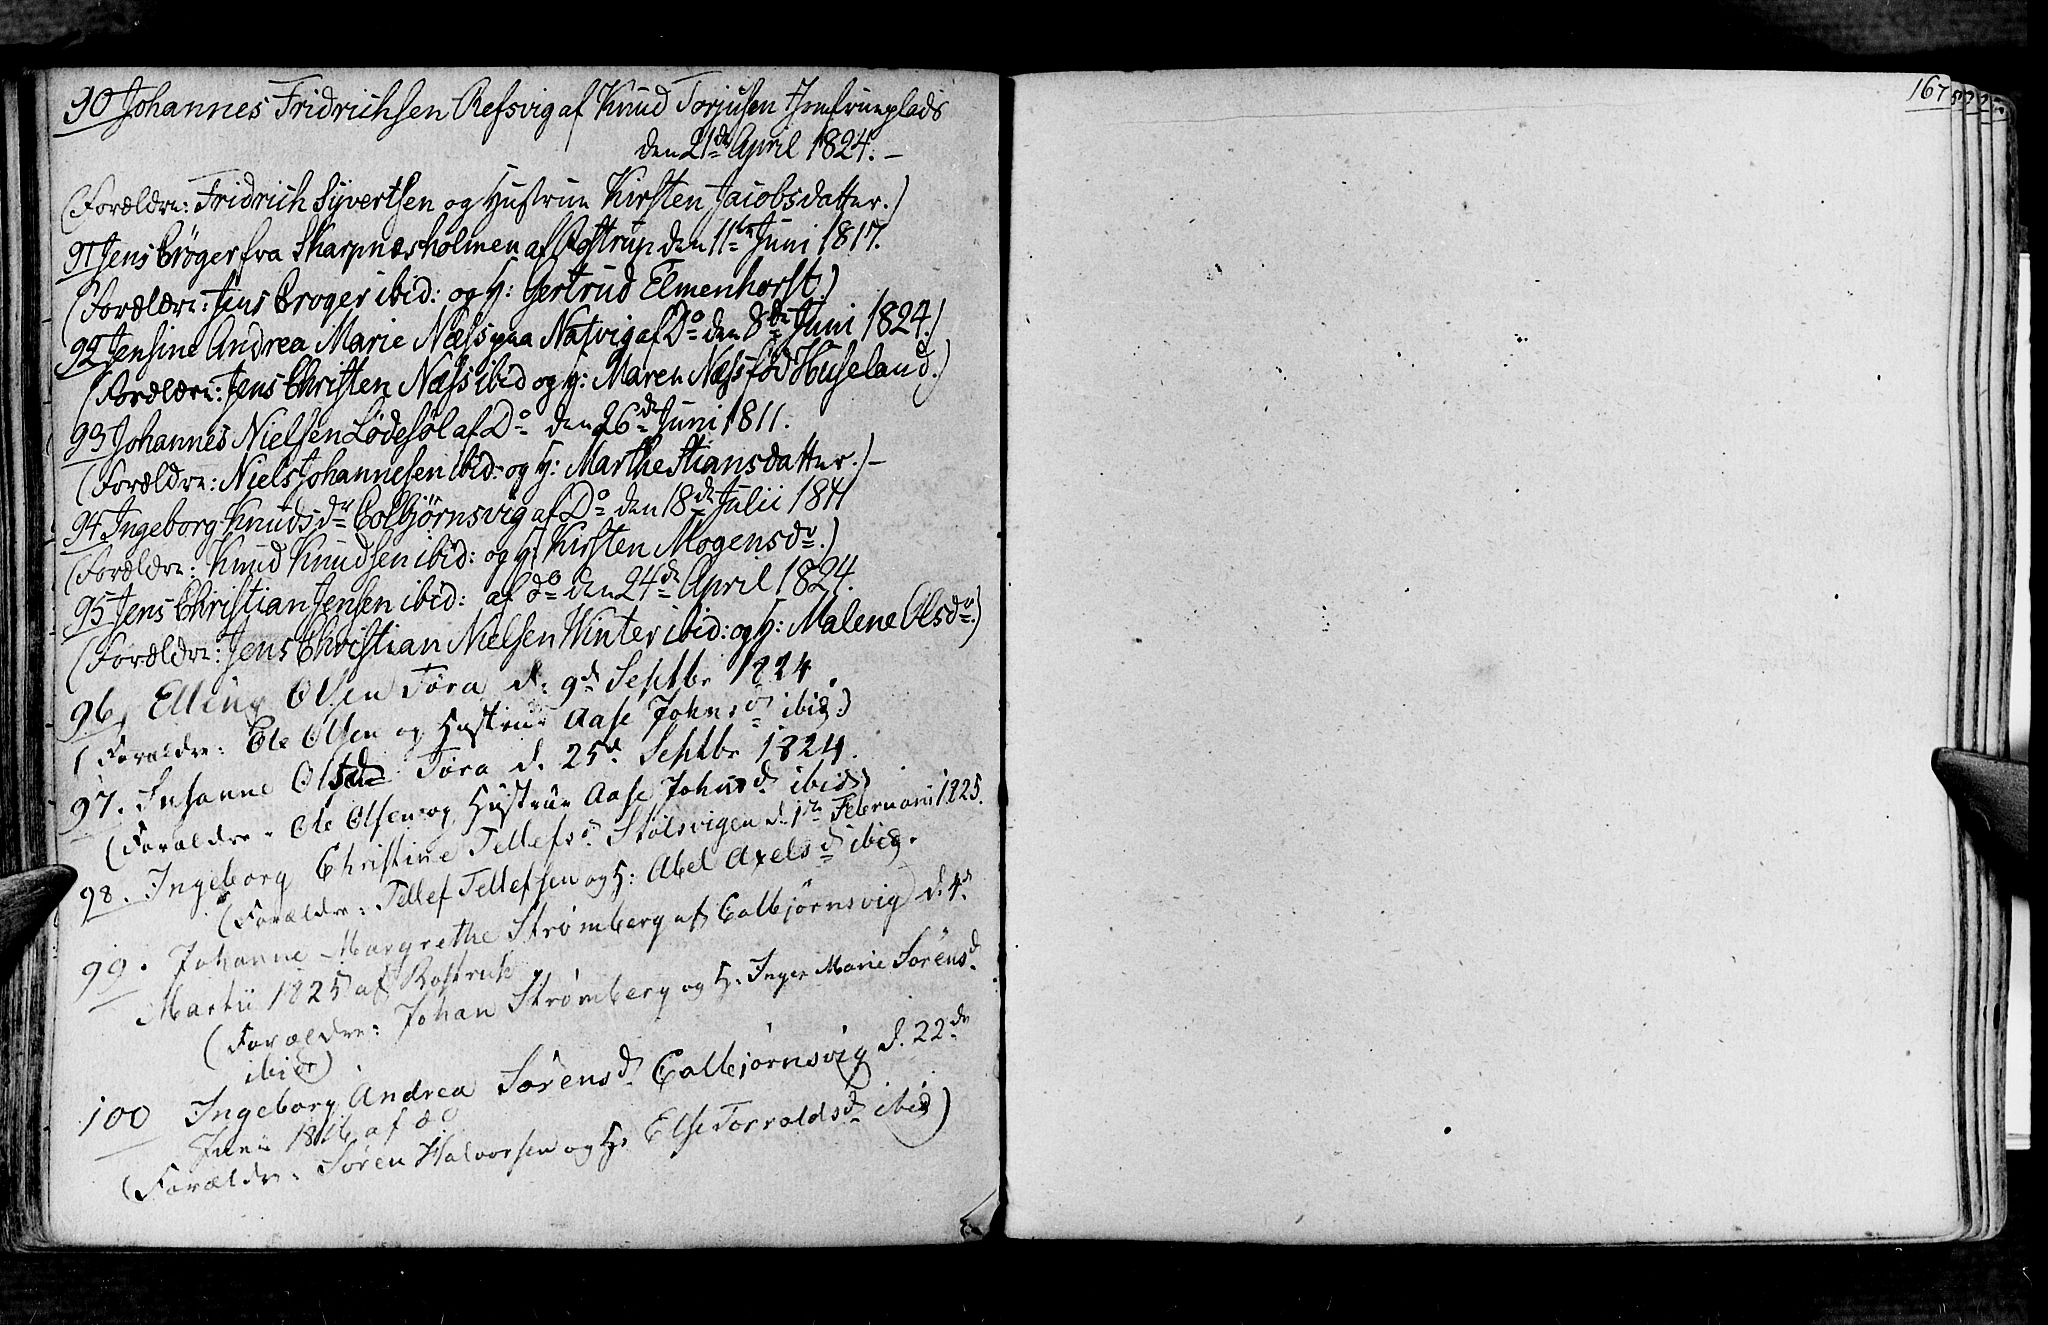 90 Johannes Fridrichsen Refsvig af Knud Torjusen Jomfrueplads
den 21de April 1824. –
(Forældre: Fridrich Syvertsen og Hustrue Kirsten Jacobsdatter.)
91 Jens Brøger fra Skarpnæsholmen af Rostrup den 11te Juni 1817.
(Forældre: Jens Broger ibid: og H: Gertrud Elmenhorst.)
92 Jensine Andrea Marie Næss paa Natvig af Do den 8de Juni 1824.)
(Forældre: Jens Christen Næss ibid og H: Maren Næss fød Huseland.)
93 Johannes Nielsen Lødesøl af Do den 26de Juni 1811.
(Forældre: Niels Johannesen ibid: og H: Marthe Stiansdatter.) –
94 Ingeborg Knudsdr Colbjørnsvig af Do den 18de Julii 1811
(Forældre: Knud Knudsen ibid: og H: Kirsten Mogensdr.)
95 Jens Christian Jensen ibid: af do den 24de April 1824.
(Forældre: Jens Christian Nielsen Winter ibid: og H: Malene Olsdr.)
96, Elling Olsen Tøra d: 9d Septbr 1824.
(Forældre: Ole Olsen og Hustrue Aase Johnsd ibid.)
97. Susanne Olsd Tøra d. 25d Septbr 1824.
(Forældre: Ole Olsen og Hustrue Aase Johnsd ibid)
98. Ingeborg Christine Tellefsd. Stølsvigen d. 1te Februarii 1825.
(Forældre: Tellef Tellefsen og H: Abel Axelsd ibid.
99. Johanne Margrethe Strømberg af Colbjørnsvig d. 4d
Martii 1825 af Rostrup
(Forældre: Johan Strømberg og H. Inger Marie Sørensd.
ibid)
100 Ingeborg Andrea Sørensd. Colbjørnsvig d. 22de
Junii 1816 af do
(Forældre: Søren Halvorsen og H: Else Torvaldsd ibid)
167